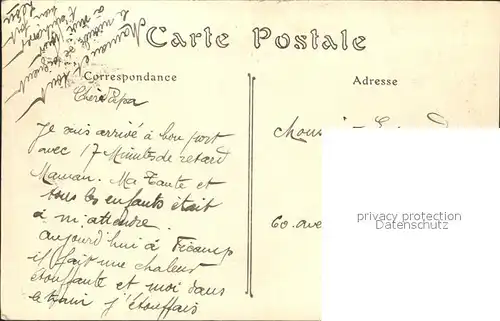 Carte Postale
Correspondance
Adresse
Cher Papa
Je suis arrivé à bon port
avec 17 Minutes de retard
Maman. Ma Tante et
tous les enfants était
à m'attendre.
aujourd'hui à Fécamp
il fait une chaleur
étouffante et moi dans
le train j'étouffais
60. ave
privacy protection
Datenschutz